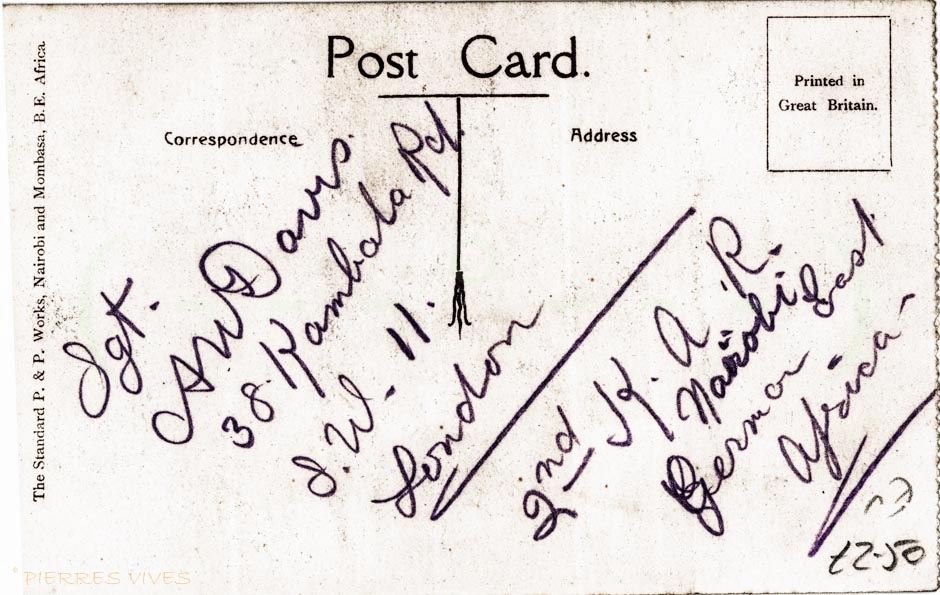 Post Card.
Printed in
Great Britain.
Correspondence
Address
The Standard P. & P. Works, Nairobi and Mombasa, B.E. Africa.
Sgt.
AW Davis.
38 Kambala Rd.
S.W. 11.
London
2nd K. A. R.
Nairobi
German East
Africa
£2-50
© PIERRES VIVES